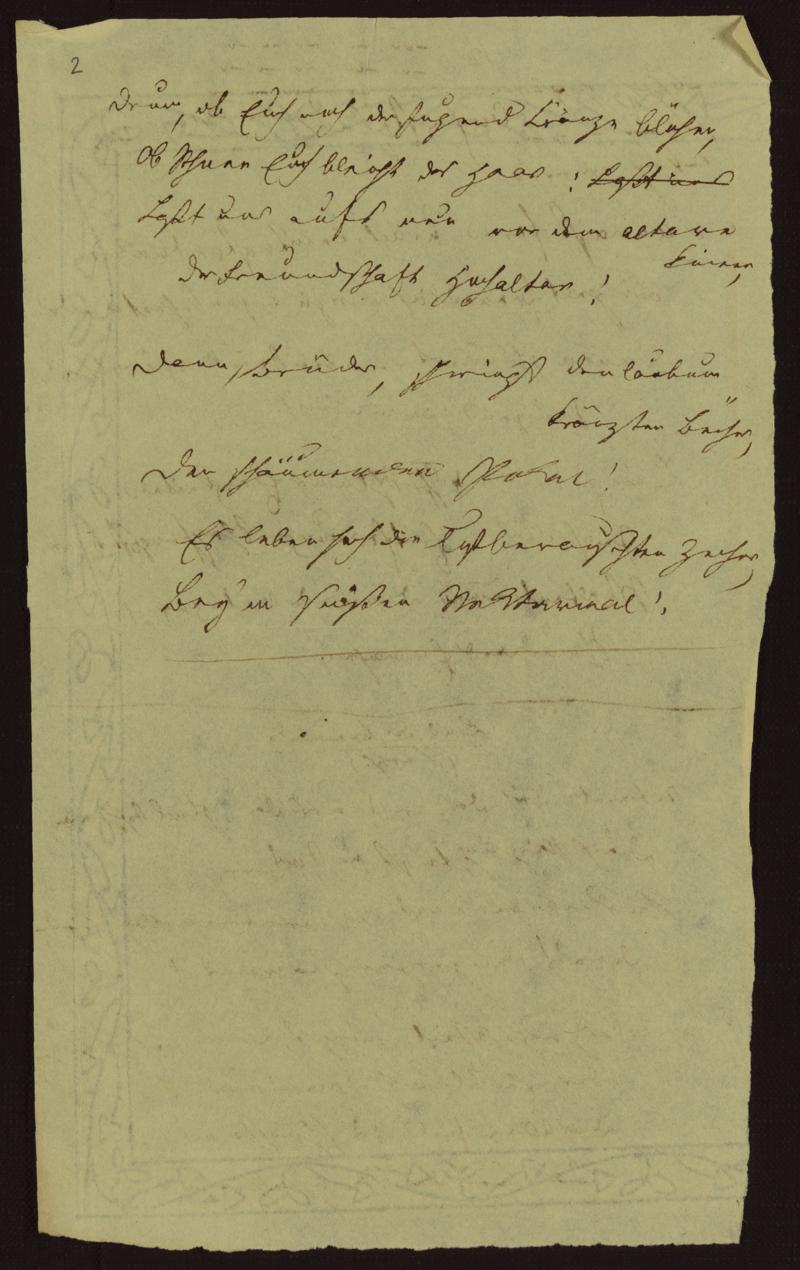 2
Drum, ob Euch noch der Jugend Kränze blühen,
Ob Schnee Euch bleicht das Haar: Laßt uns
Laßt uns aufs neu vor dem Altare
knieen,
Der Freundschaft Hochaltar!
Dann, Brüder, schwingt den laubum
kränzten Becher,
Den schäumenden Pokal!
Es leben hoch die Lustberauschten Zecher,
Bey'm süßen Nektarmal!